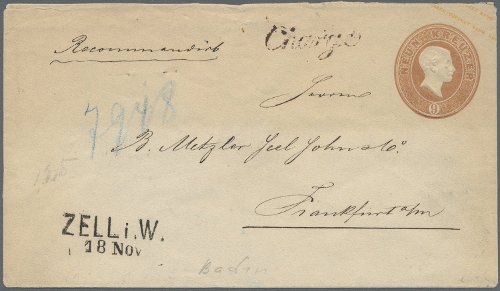 Recommandirt
Chargé
NEUN KREUZER
9
Herrn
7948
B. Metzler seel Sohn & Co.
Frankfurt a/m
ZELL i. W.
18 Nov
Baden